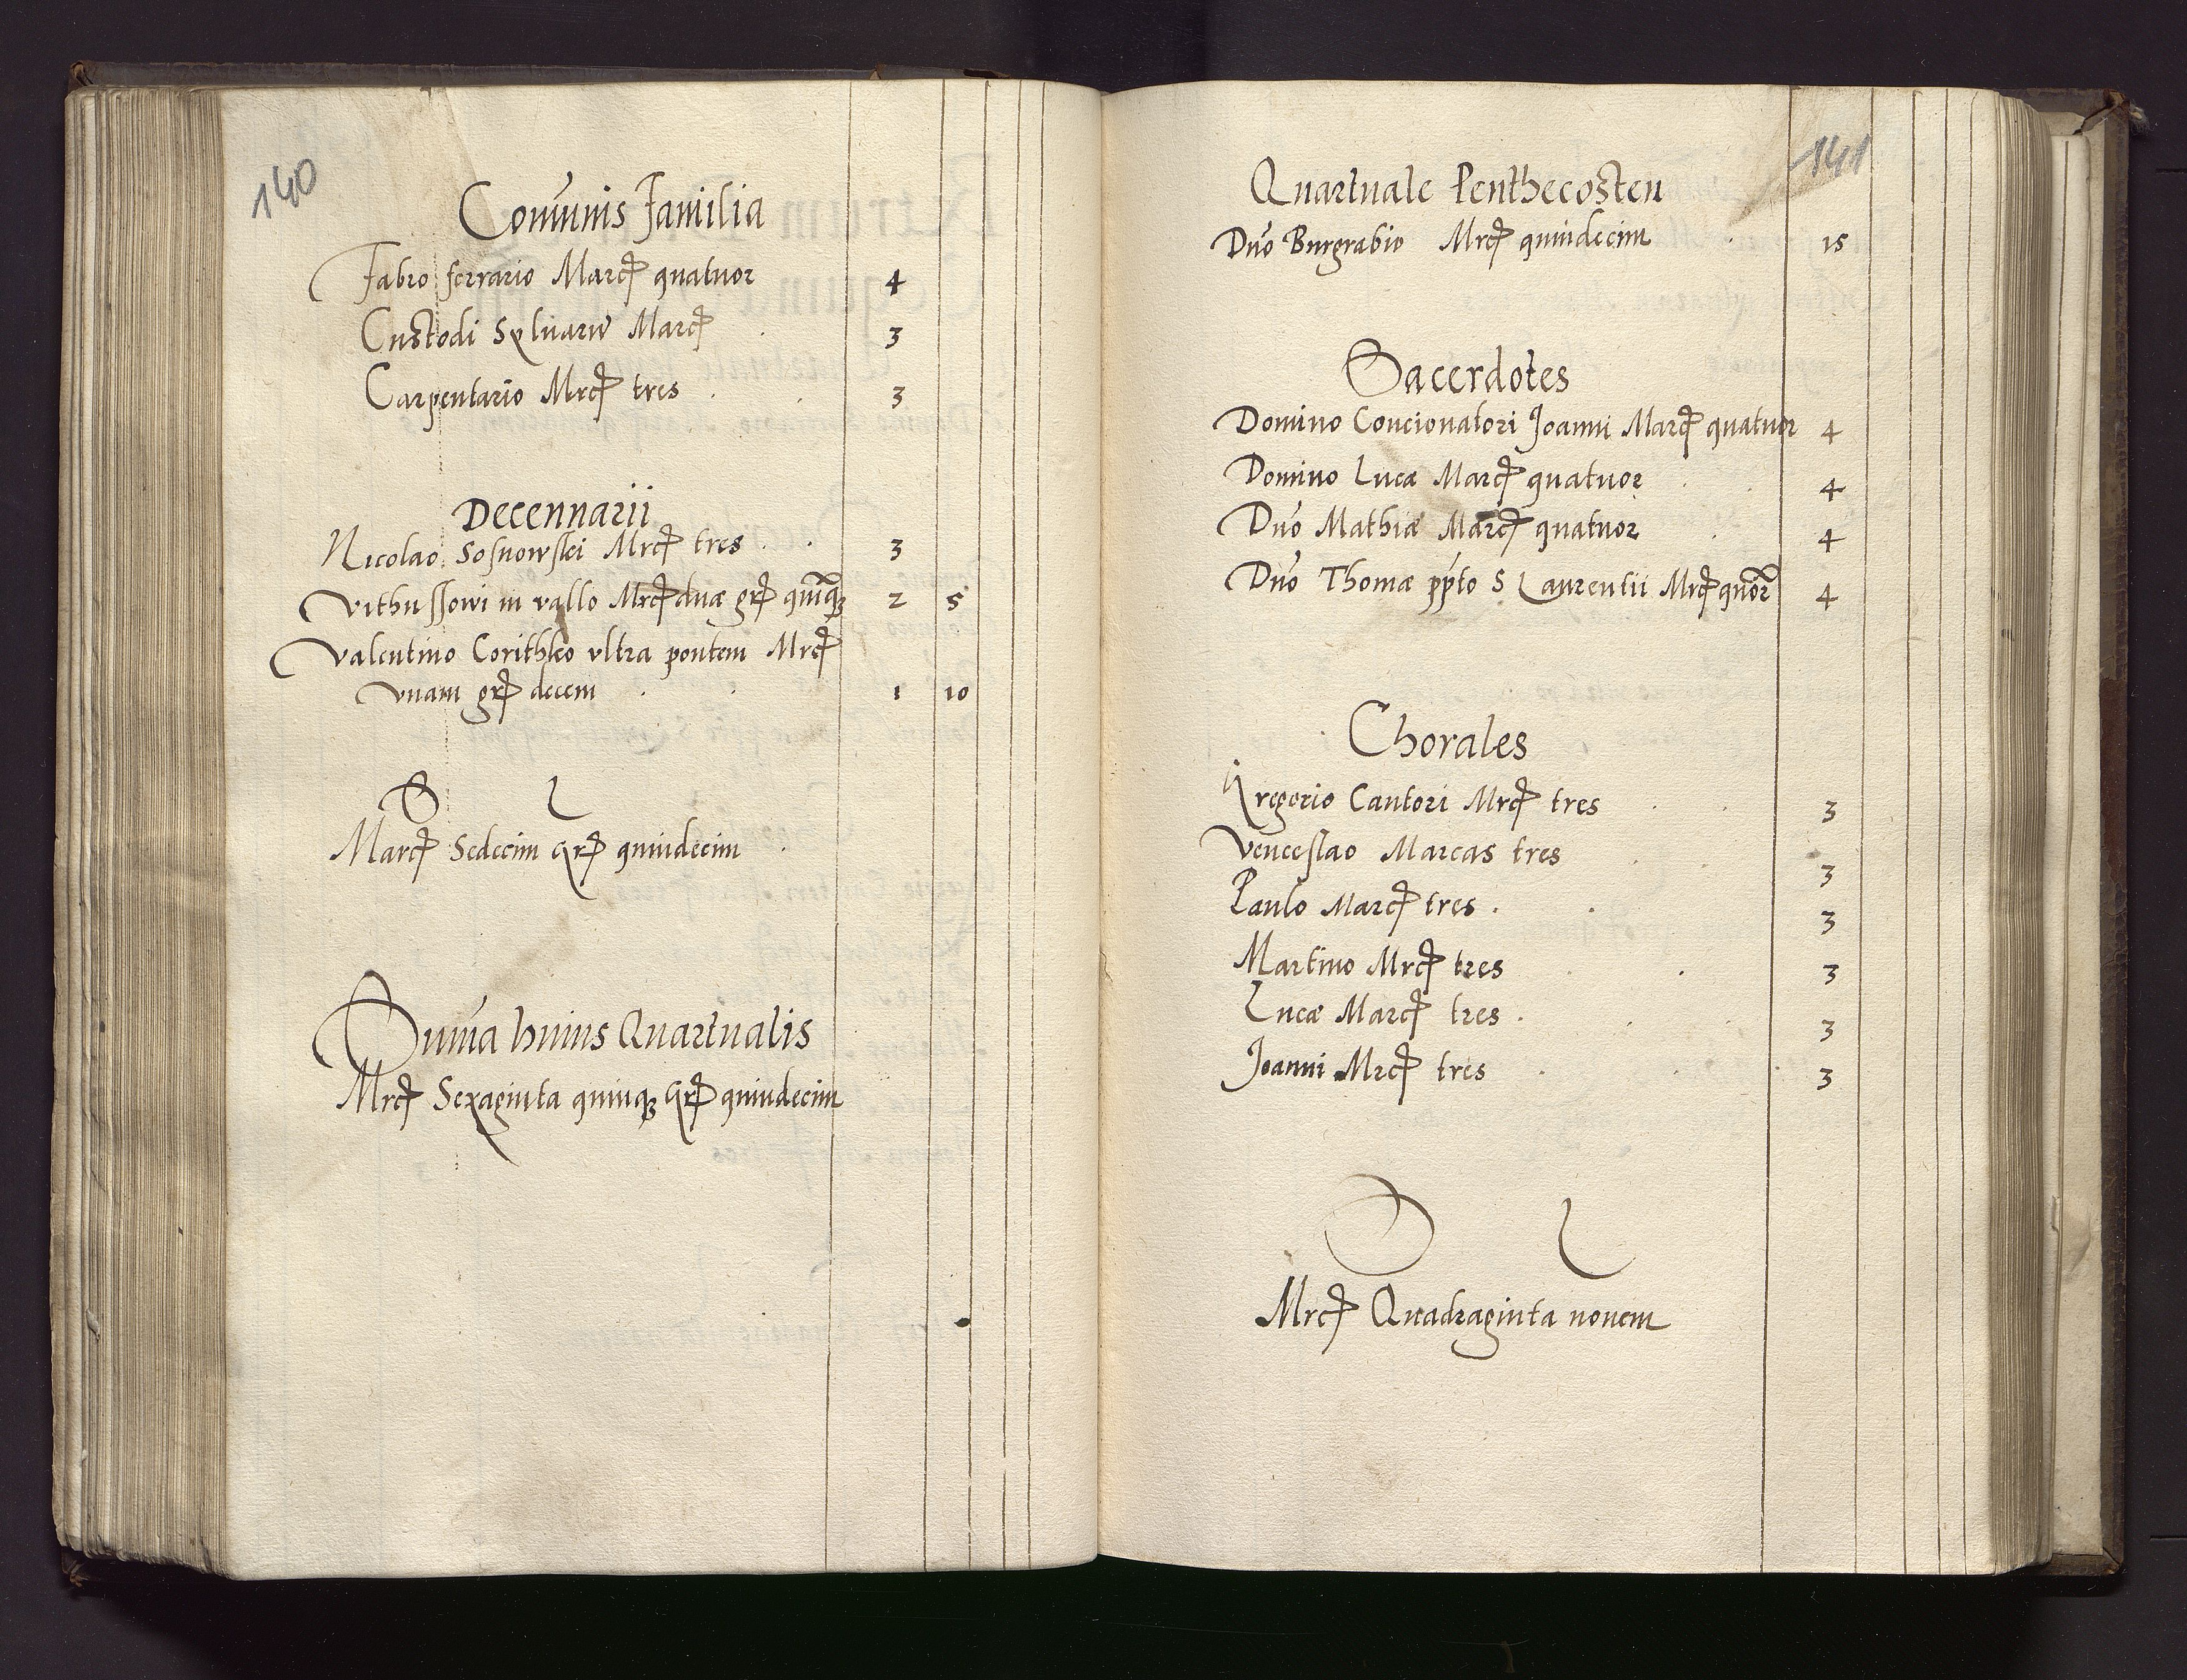 140
Com̃unis Familia
Fabro ferrario Marcꝭ quatuor 4
Custodi Syluarũ Marcꝭ 3
Carpentario Mrcꝭ tres 3
Decennarii
Nicolao Sosnowskei Mrcꝭ tres 3
Vithussowi in vallo Mrcꝭ duæ grꝭ quĩqꝫ 2 5
Valentino Corithko vltra pontem Mrcꝭ
vnam grꝭ decem 1 10
S L
Marcꝭ Sedecim Grꝭ quindecim
Sum̃a huius Quartualis
Mrcꝭ Sexaginta quinqꝫ Grꝭ quindecim
141
Quartuale Penthecosten
Dño Burgrabio Mrcꝭ quindecim 15
Sacerdotes
Domino Concionatori Joanni Marcꝭ quatuor 4
Domino Lucæ Marcꝭ quatuor 4
Dño Mathiæ Marcꝭ quatuor 4
Dño Thomæ pp̃to S Laurentii Mrcꝭ quor̃ 4
Chorales
Gregorio Cantori Mrcꝭ tres 3
Venceslao Marcas tres 3
Paulo Marcꝭ tres 3
Martino Mrcꝭ tres 3
Lucæ Marcꝭ tres 3
Joanni Mrcꝭ tres 3
S L
Mrcꝭ Quadraginta nouem